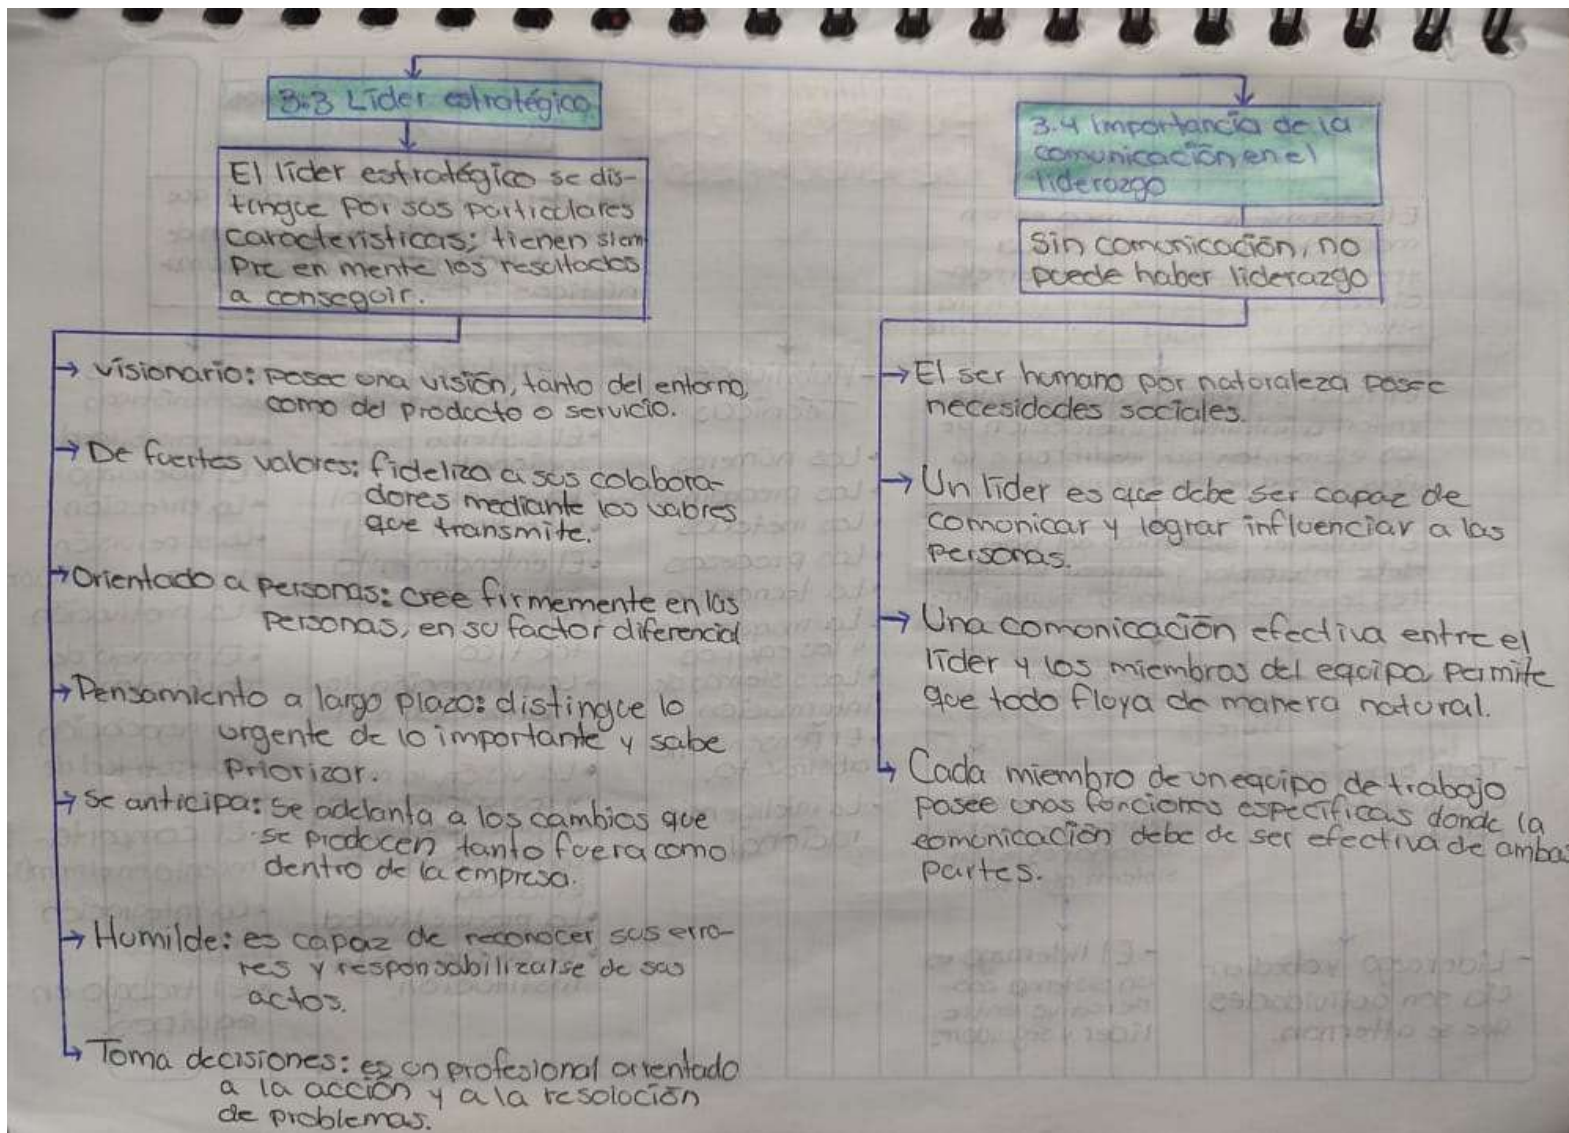 3.3 Líder estratégico
El líder estratégico se dis-
tingue por sus particulares
características; tienen siem
pre en mente los resultados
a conseguir.
→ Visionario: posee una visión, tanto del entorno,
como del producto o servicio.
→ De fuertes valores: fideliza a sus colabora-
dores mediante los valores
que transmite.
→ Orientado a personas: cree firmemente en las
personas, en su factor diferencial
→ Pensamiento a largo plazo: distingue lo
urgente de lo importante y sabe
priorizar.
→ se anticipa: se adelanta a los cambios que
se producen tanto fuera como
dentro de la empresa.
→ Humilde: es capaz de reconocer sus erro-
res y responsabilizarse de sus
actos.
→ Toma decisiones: es un profesional orientado
a la acción y a la resolución
de problemas.
3.4 Importancia de la
comunicación en el
liderazgo
Sin comunicación, no
puede haber liderazgo
→ El ser humano por naturaleza posee
necesidades sociales.
→ Un líder es que debe ser capaz de
comunicar y lograr influenciar a las
personas.
→ Una comunicación efectiva entre el
líder y los miembros del equipo permite
que todo fluya de manera natural.
→ Cada miembro de un equipo de trabajo
posee unas funciones específicas donde la
comunicación debe de ser efectiva de ambas
partes.